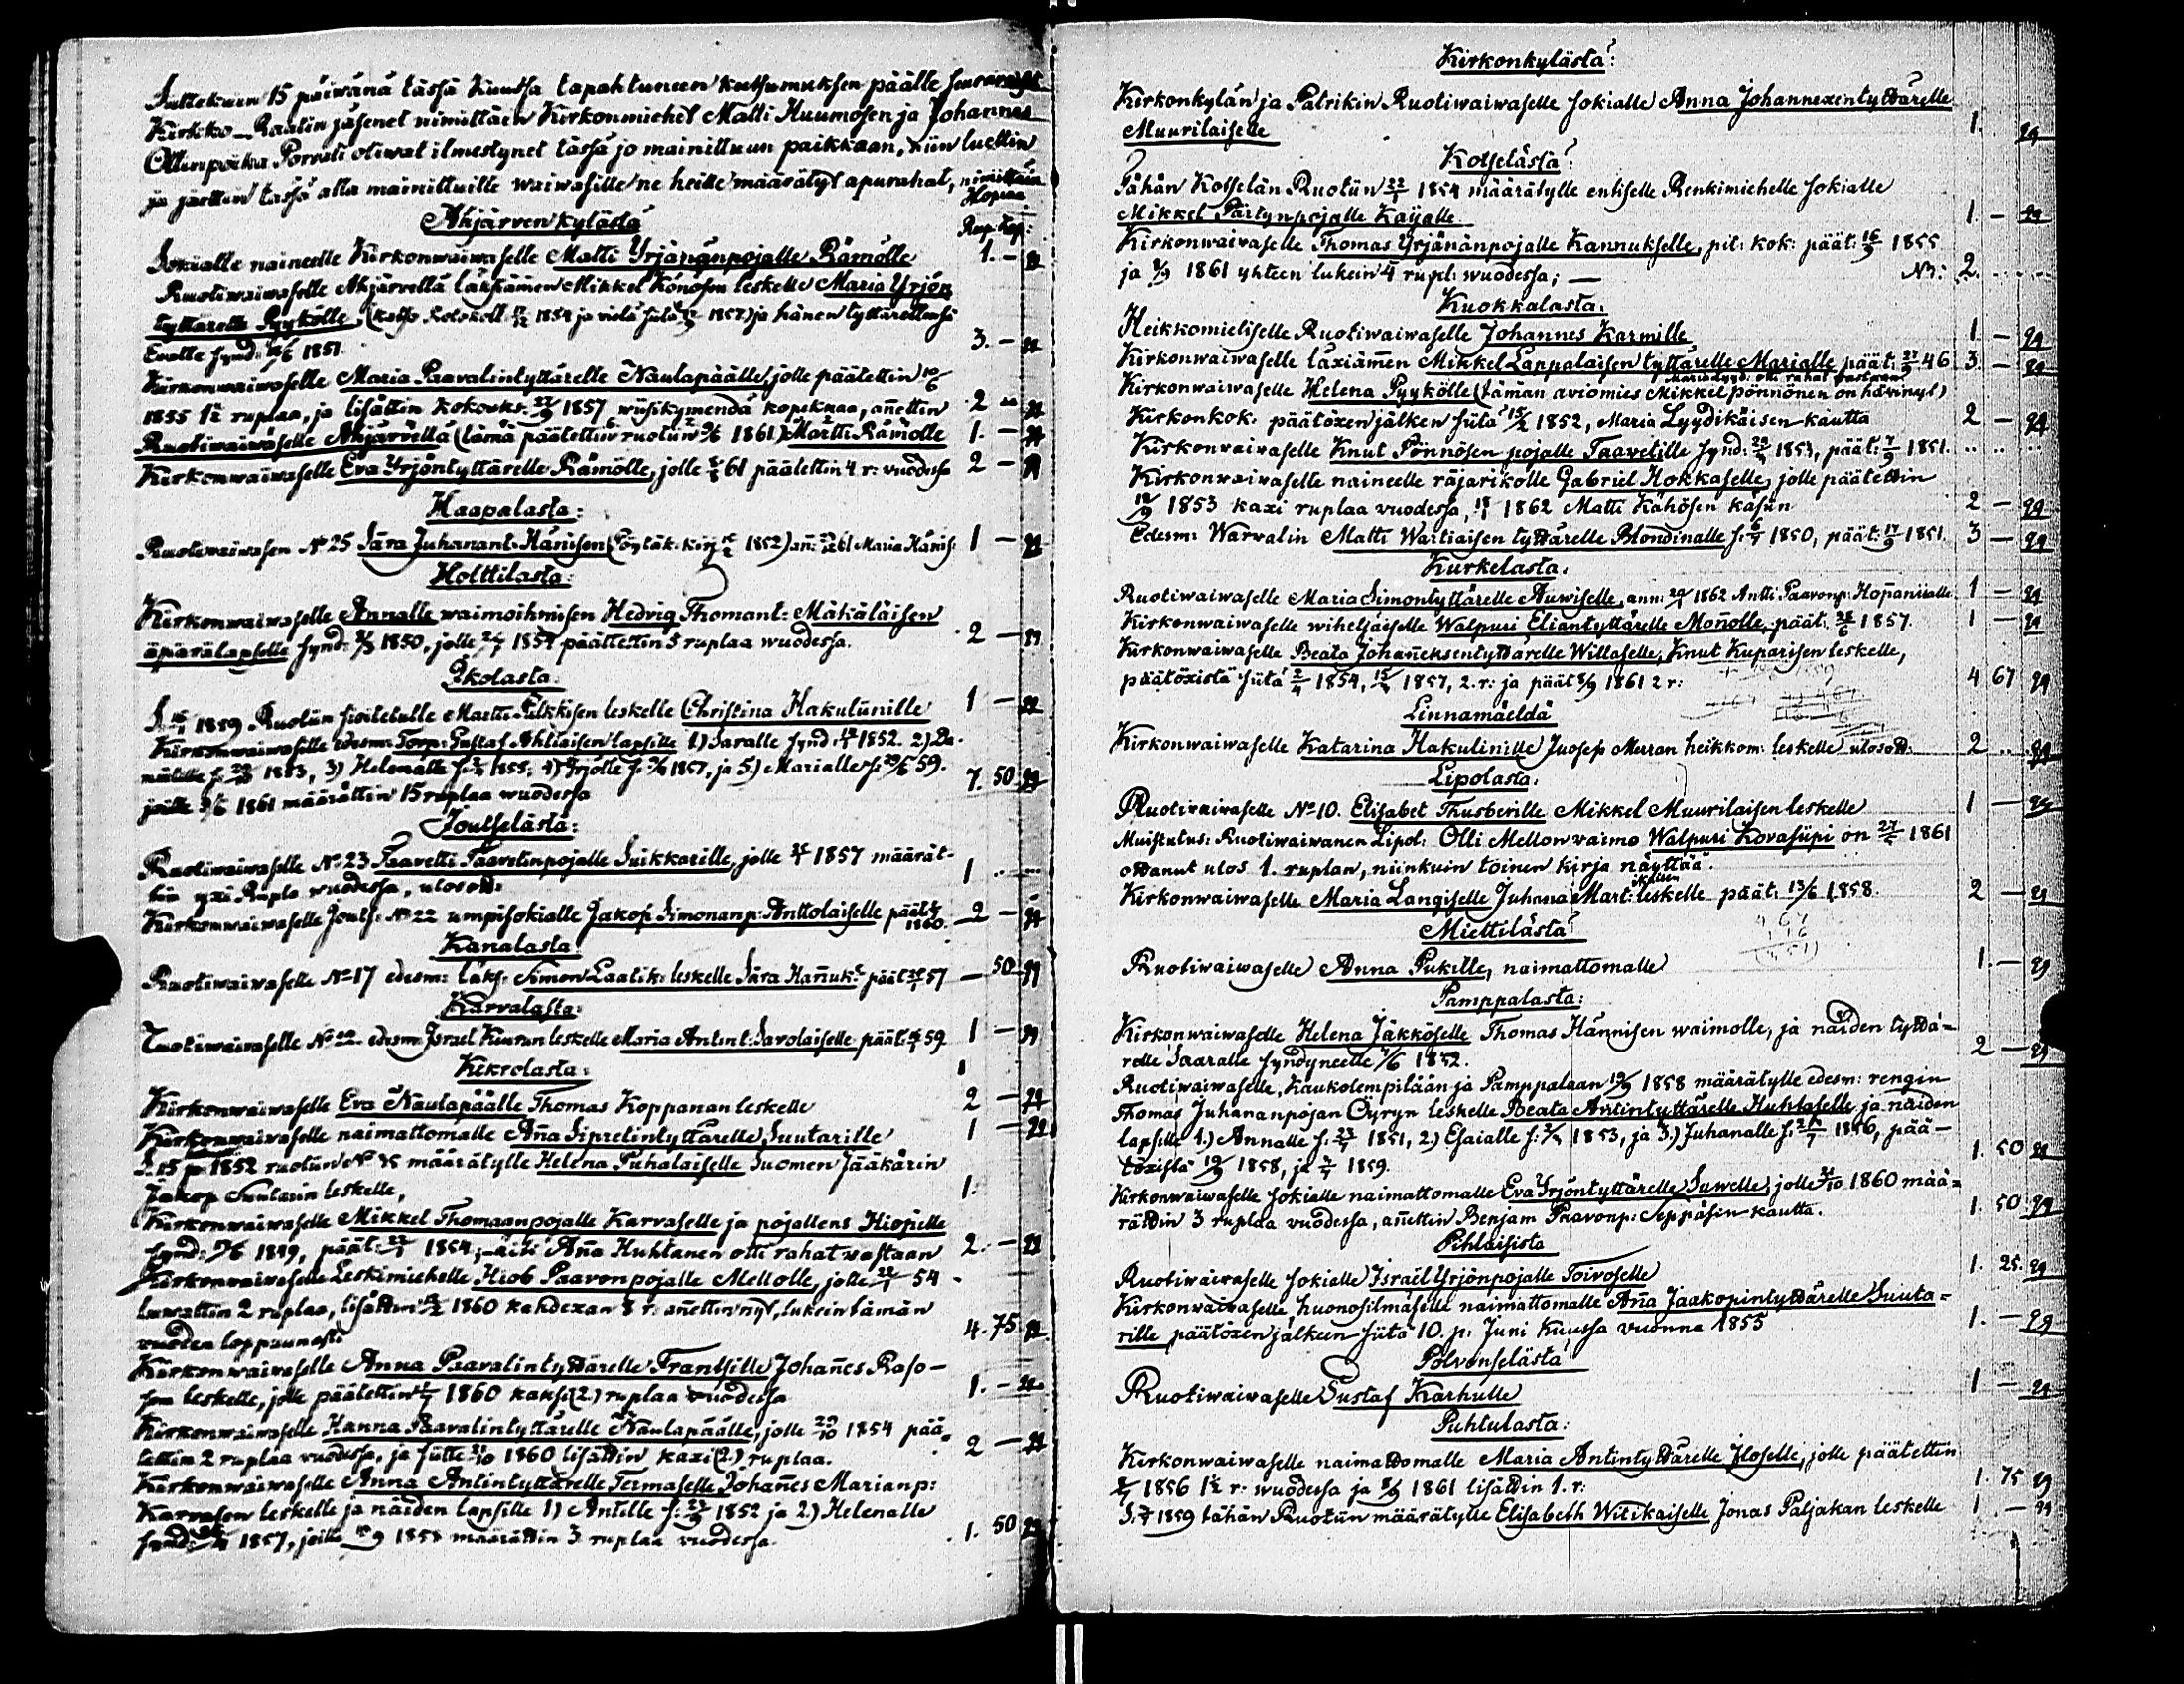 Sittekuin 15 päiwänä tässä kuussa tapahtuneen kutsumuksen päälle seurawaiset
Kirkko-Raatin jäsenet nimittäin Kirkonmiehet Matti Huumosen ja Johannes
Ollinpoika Porvali oliwat ilmestynet tässä jo mainittuun paikkaan, niin luettin
ja jaettin tässä alla mainittuille waiwasille ne heille määrätyt apurahat, nimittäin
Hopiaa
Ahjärven kylästä Rup: Kop:
Sokialle naineelle Kirkonwaiwaselle Matti Yrjänänpojalle Rämölle 1. —
Ruotiwaiwaselle Ahjärvellä läksiämen Mikkel Könösen leskelle Maria Yrjön
tyttarelle Pyykölle, 1854 ja hänen tyttärellensä
Evalle synd: 1851. 3. —
Kirkonwaiwaselle Maria Paavalintyttärelle Naulapäälle, jolle päätettin
1855 1½ ruplaa, ja lisättin kokouks: 1857 wiisikymendä kopekkaa, anettin 2
Ruotiwaiwaselle Ahjärvellä (tämä päätettin ruotiin 1861) Martti Rämölle 1. —
Kirkonwaiwaselle Eva Yrjöntyttärelle Rämölle, jolle 61 päätettin 4 r: vuodessa 2 —
Haapalasta:
Ruotiwaiwasen No 25 Sara Juhanant: Hänisen (Pöytäk. 1852) Maria Hänis: 1 —
Holttilasta:
Kirkonwaiwaselle Annalle waimoihmisen Hedvig Thomant: Mäkäläisen
äpärälapselle synd: 1850, jolle 1854 päätettin 5 ruplaa wuodessa. 2 —
Ikolasta:
1859 Ruotiin Martti Pilkkisen leskelle Christina Hakuliinille 1 —
Kirkonwaiwasille edesm: Torp: Gustaf Ahtiaisen lapsille 1) Saralle synd: 1852. 2) Da-
1853, 3) Helenalle 1855; 4) Yrjölle s: 1857, ja 5.) Marialle s: 59.
joille 1861 määrättin 15 ruplaa wuodessa 7. 50
Joutselästä:
Ruotiwaiwaselle No 23 Taavetti Taavetinpojalle Suikkarille, jolle 1857 määrät-
tin yxi Rupla wuodessa, ulosott: 1
Kirkonwaiwaselle Jouts: No 22 umpisokialle Jakop Simonanp: Anttolaiselle päät: 1860. 2 —
Kanalasta:
Ruotiwaiwaselle No 17 edesm: läks: Simon Laatik: leskelle Sara Hañuk: päät 57 — 50
Karvalasta:
Ruotiwaiwaselle No 22 edesm: Israel Kiurun leskelle Maria Antint: Savolaiselle päät: 59 1 —
Kekrolasta:
Kirkonwaiwaselle Eva Naulapäälle Thomas Koppanan leskelle 2 —
Kirkonwaiwaselle naimattomalle Aña Sipretintyttärelle Suutarille 1 —
S. 15 1852 ruotiin määrätylle Helena Puhalaiselle Suomen Jääkärin
Jakop leskelle, 1.
Kirkonwaiwaselle Mikkel Thomaanpojalle Karvaselle ja pojallens Hiopille
synd: 1849, päät: 1854; äiti Aña Huhtanen otti rahat vastaan 2. —
Kirkonwaiwaselle Leskimiehelle Hiob Paavonpojalle Mellolle, jolle 54
luwattin 2 ruplaa, lisättin 1860 kahdexan 8 r: anettin nyt, lukein tämän
vuoden loppuunasti 4. 75
Kirkonwaiwaselle Anna Paavalintyttärelle Frantsille Johañes Raso-
sen leskelle, jolle päätettin 1860 kaksi (2.) ruplaa vuodessa 1. —
Kirkonwaiwaselle Hanna Paavalintyttärelle Naulapäälle, jolle 29/10 1854 pää-
tettin 2 ruplaa vuodessa, ja siitte 1860 lisättin kaxi (2.) ruplaa. 2 —
Kirkonwaiwaselle Anna Antintyttärelle Termaselle Johañes Marianp:
Karvasen leskelle ja näiden lapsille 1) Antille s: 1852 ja 2.) Helenalle
synd: 1857, joille 1858 määrättin 3 ruplaa vuodessa. 1. 50
Kirkonkylästä:
Kirkonkylän ja Patrikin Ruotiwaiwaselle sokialle Anna Johannexentyttärelle
Muurilaiselle 1.
Kotselästä:
Tähän Kotselän Ruotiin 22/7 1854 määrätylle entiselle Renkimiehelle sokialle
Mikkel Pärtynpojalle Kaijalle. 1. —
Kirkonwaiwaselle Thomas Yrjänänpojalle Kannukselle, pit: kok: päät: 16/9 1855
ja 8/9 1861 yhteen lukein 4 rupl: wuodessa; — 2.
Kuokkalasta:
Heikkomieliselle Ruotiwaiwaselle Johannes Karmille 1 —
Kirkonwaiwaselle läxiämen Mikkel Lappalaisen tyttärelle Marialle päät: 46 3. —
Maria Lyyd: otti rahat vastaan
Kirkonwaiwaselle Helena Pyykölle (tämän aviomies Mikkel Pönnönen on hävinyt)
Kirkonkok: päätöxen jälken siitä 1852, Maria Lyydikäisen kautta 2 —
Kirkonwaiwaselle Knut Pönnösen pojalle Taavetille synd: 1853, päät: 1851.
Kirkonwaiwaselle naineelle räjarikolle Gabriel Hokkaselle, jolle päätettin
1853 kaxi ruplaa vuodessa, 1862 Matti Kähösen käsiin 2 —
Edesm: Warvalin Matti Wartiaisen tyttärelle Blondinalle s: 1850, päät: 17/9 1851. 3 —
Kurkelasta.
Ruotiwaiwaselle Maria Simontyttärelle Auwiselle, ann: 1862 Antti Paavonp: Hopañialle 1 —
Kirkonwaiwaselle wiheljäiselle Walpuri Eliantyttärelle Moñolle, päät. 1857. 1 —
Kirkonwaiwaselle Beata Johañeksentyttärelle Willaselle, Knut Kuparisen leskelle,
päätöxistä siitä 2/4 1854, 1857, 2. r: ja päät 8/9 1861 2 r: 4 67
Linnamäeldä
Kirkonwaiwaselle Katarina Hakulinille Juosep Murran heikkom: leskelle ulosott: 2
Lipolasta.
Ruotiwaiwaselle No 10. Elisabet Thusberille Mikkel Muurilaisen leskelle 1 —
Muistutus: Ruotiwaiwanen Lipol: Olli Mellon vaimo Walpuri Kovasiipi on 1861
ottanut ulos 1. ruplan, niinkuin toinen kirja näyttää.
Kirkonwaiwaselle Maria Langiselle Juhana Mart: leskelle päät: 13/6 1858. 2 —
Miettilästä
Ruotiwaiwaselle Anna Pukille, naimattomalle 1. —
Pamppalasta:
Kirkonwaiwaselle Helena Jäkköselle Thomas Hännisen waimolle, ja näiden tyttä-
relle Saaralle syndyneelle 1852. 2 —
Ruotiwaiwaselle, Kaukolempilään ja Pamppalaan 19/9 1858 määrätylle edesm: rengin
Thomas Juhananpojan Öyryn leskelle Beata Antintyttärelle Huhtaselle ja näiden
lapsille 1.) Annalle s: 1851, 2.) Esaialle s: 1853, ja 3.) Juhanalle s: 1856, pää-
töxistä 19/9 1858, ja 1859. 1. 50
Kirkonwaiwaselle sokialle naimattomalle Eva Yrjöntyttärelle Suwelle, jolle 1860 mää-
rättin 3 ruplaa vuodessa, anettin Benjam Paavonp: Seppäsen kautta. 1. 50
Pihlaisista
Ruotiwaiwaselle sokialle Israël Yrjönpojalle Toivoselle 1. 25.
Kirkonwaiwaselle huonosilmäselle naimattomalle Aña Jaakopintyttärelle Suuta-
rille, päätöxen jälkeen siitä 10. p: Juni Kuussa vuonna 1855 1. —
Polvenselästä
Ruotiwaiwaselle Gustaf Karhulle 1 —
Puhtulasta:
Kirkonwaiwaselle naimattomalle Maria Antintyttärelle Iloselle, jolle päätettin
1856 1½ r: wuodessa ja 8/9 1861 lisättin 1. r: 1. 75
1859 tähän Ruotiin määrätylle Elisabeth Witikaiselle Jonas Paljakan leskelle 1. —